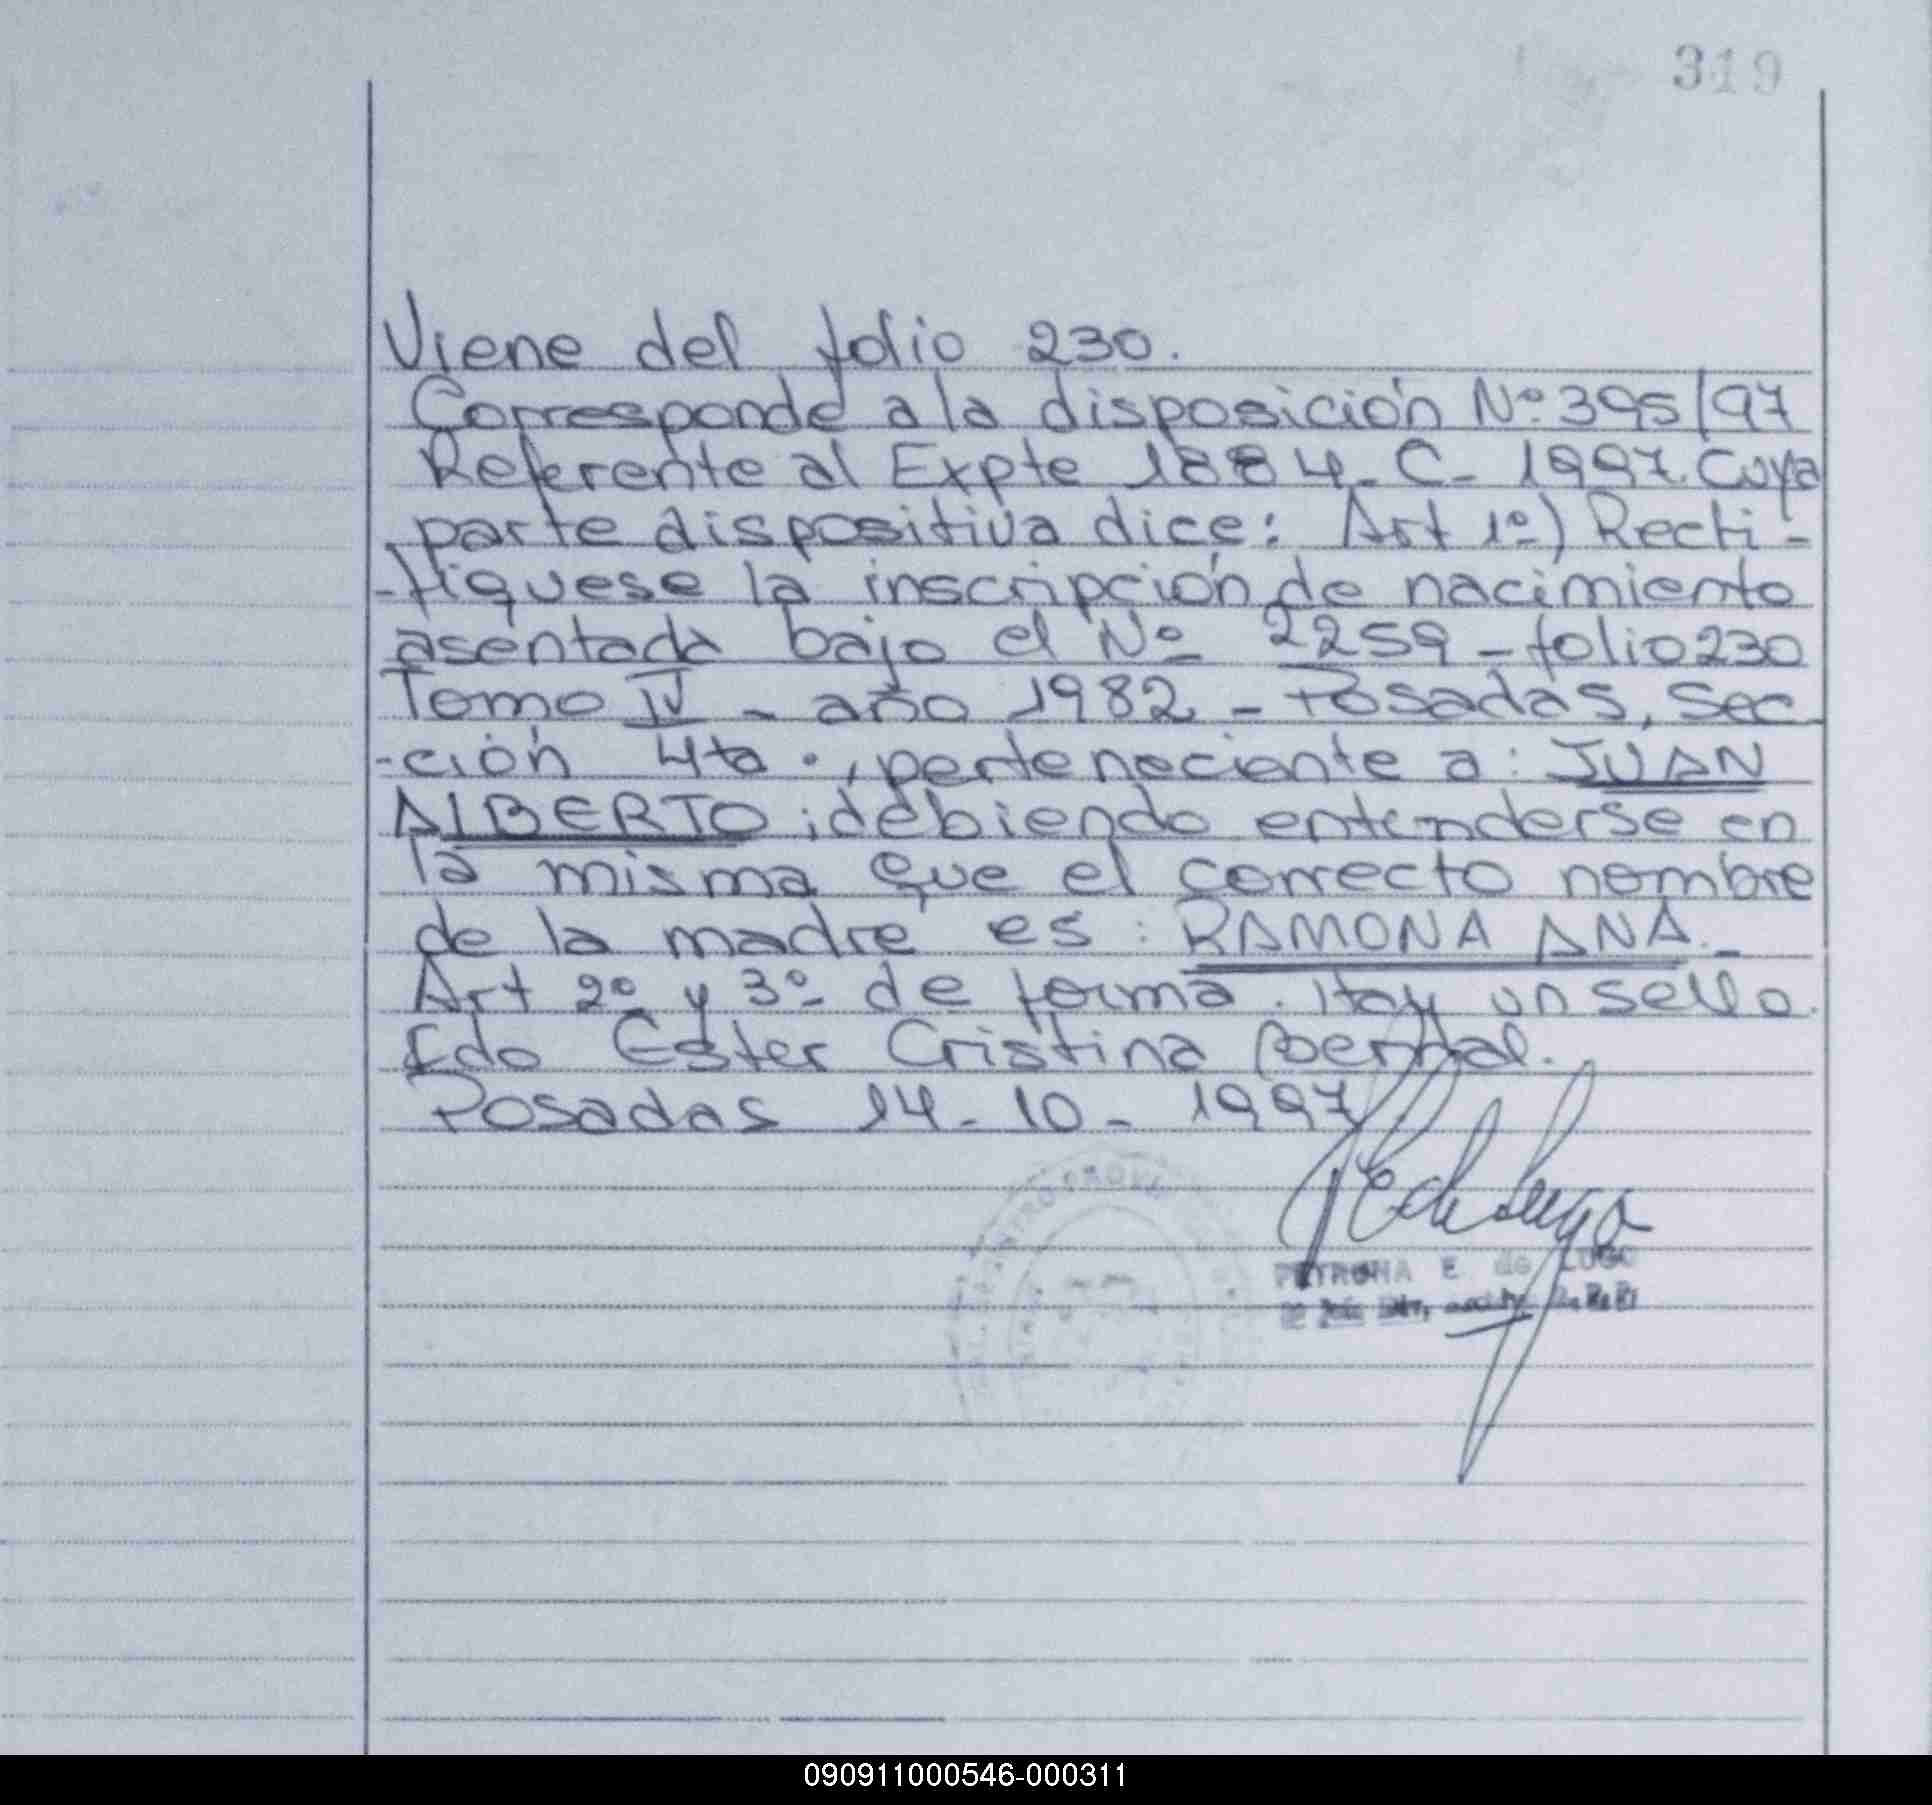 319
Viene del folio 230.
Corresponde a la disposición Nº 395/97
Referente al Expte 1884-C-1997. Cuya
parte dispositiva dice: Art 1º) Recti-
-fíquese la inscripción de nacimiento
asentada bajo el Nº 2259 - folio 230
Tomo IV - año 1982 - Posadas, Sec
-ción 4ta., perteneciente a: JUAN
ALBERTO; debiendo entenderse en
la misma que el correcto nombre
de la madre es: RAMONA ANA.-
Art 2º y 3º de forma. Hay un sello.
Fdo Ester Cristina Bernal.
Posadas 14-10-1997
PETRONA E. de LUGO
090911000546-000311